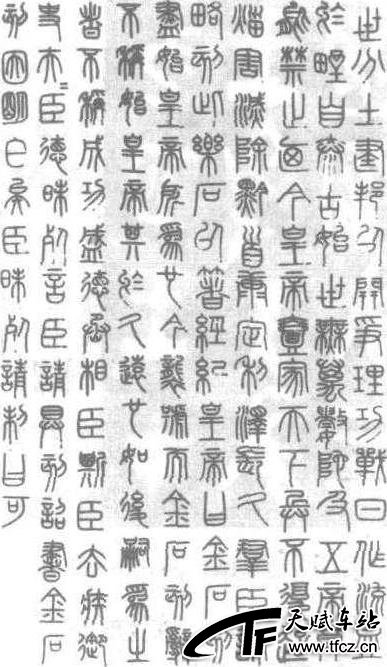 世分土建邦以開爭理功戰日作流血
於野自泰古始世無萬數陀及五帝
能禁止廼今皇帝壹家天下兵不復起
災害滅除黔首康定利澤長久群臣誦
略刻此樂石以著經紀皇帝曰金石刻
盡始皇帝所為也今襲號而金石刻辭
不稱始皇帝其於久遠也如後嗣為之
者不稱成功盛德丞相臣斯臣去疾御
史夫=臣德昧死言臣請具刻詔書金石
刻因明白矣臣昧死請制曰可
天赋车站
CTF www.tfcz.cn